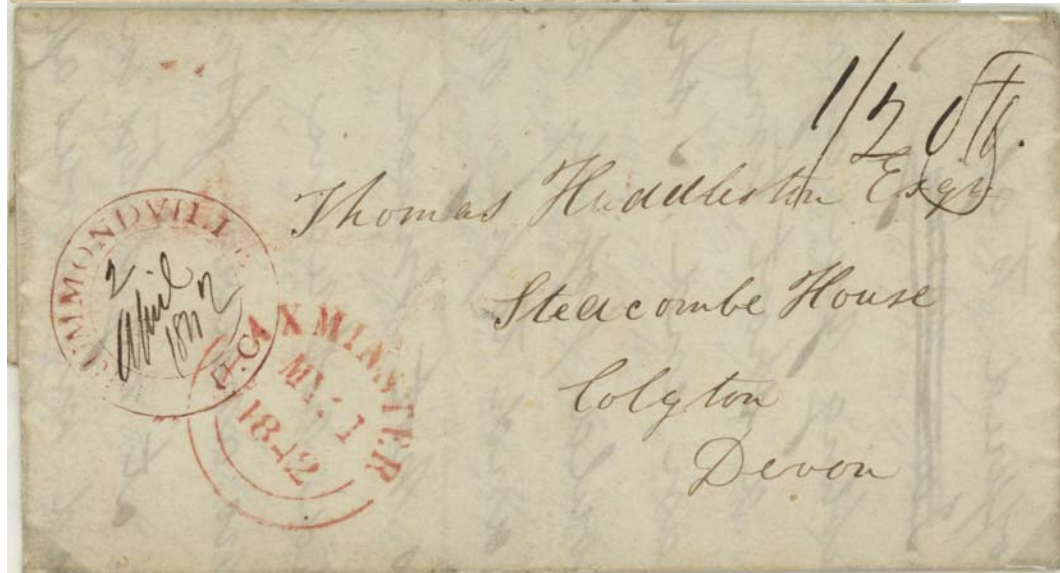 1/2 Stg.
Thomas Huddleston Esqr
Steacombe House
Colyton
Devon
UMMONDVILLE
2
April
1842
U.C.
AXMINSTER
MY 1
1842